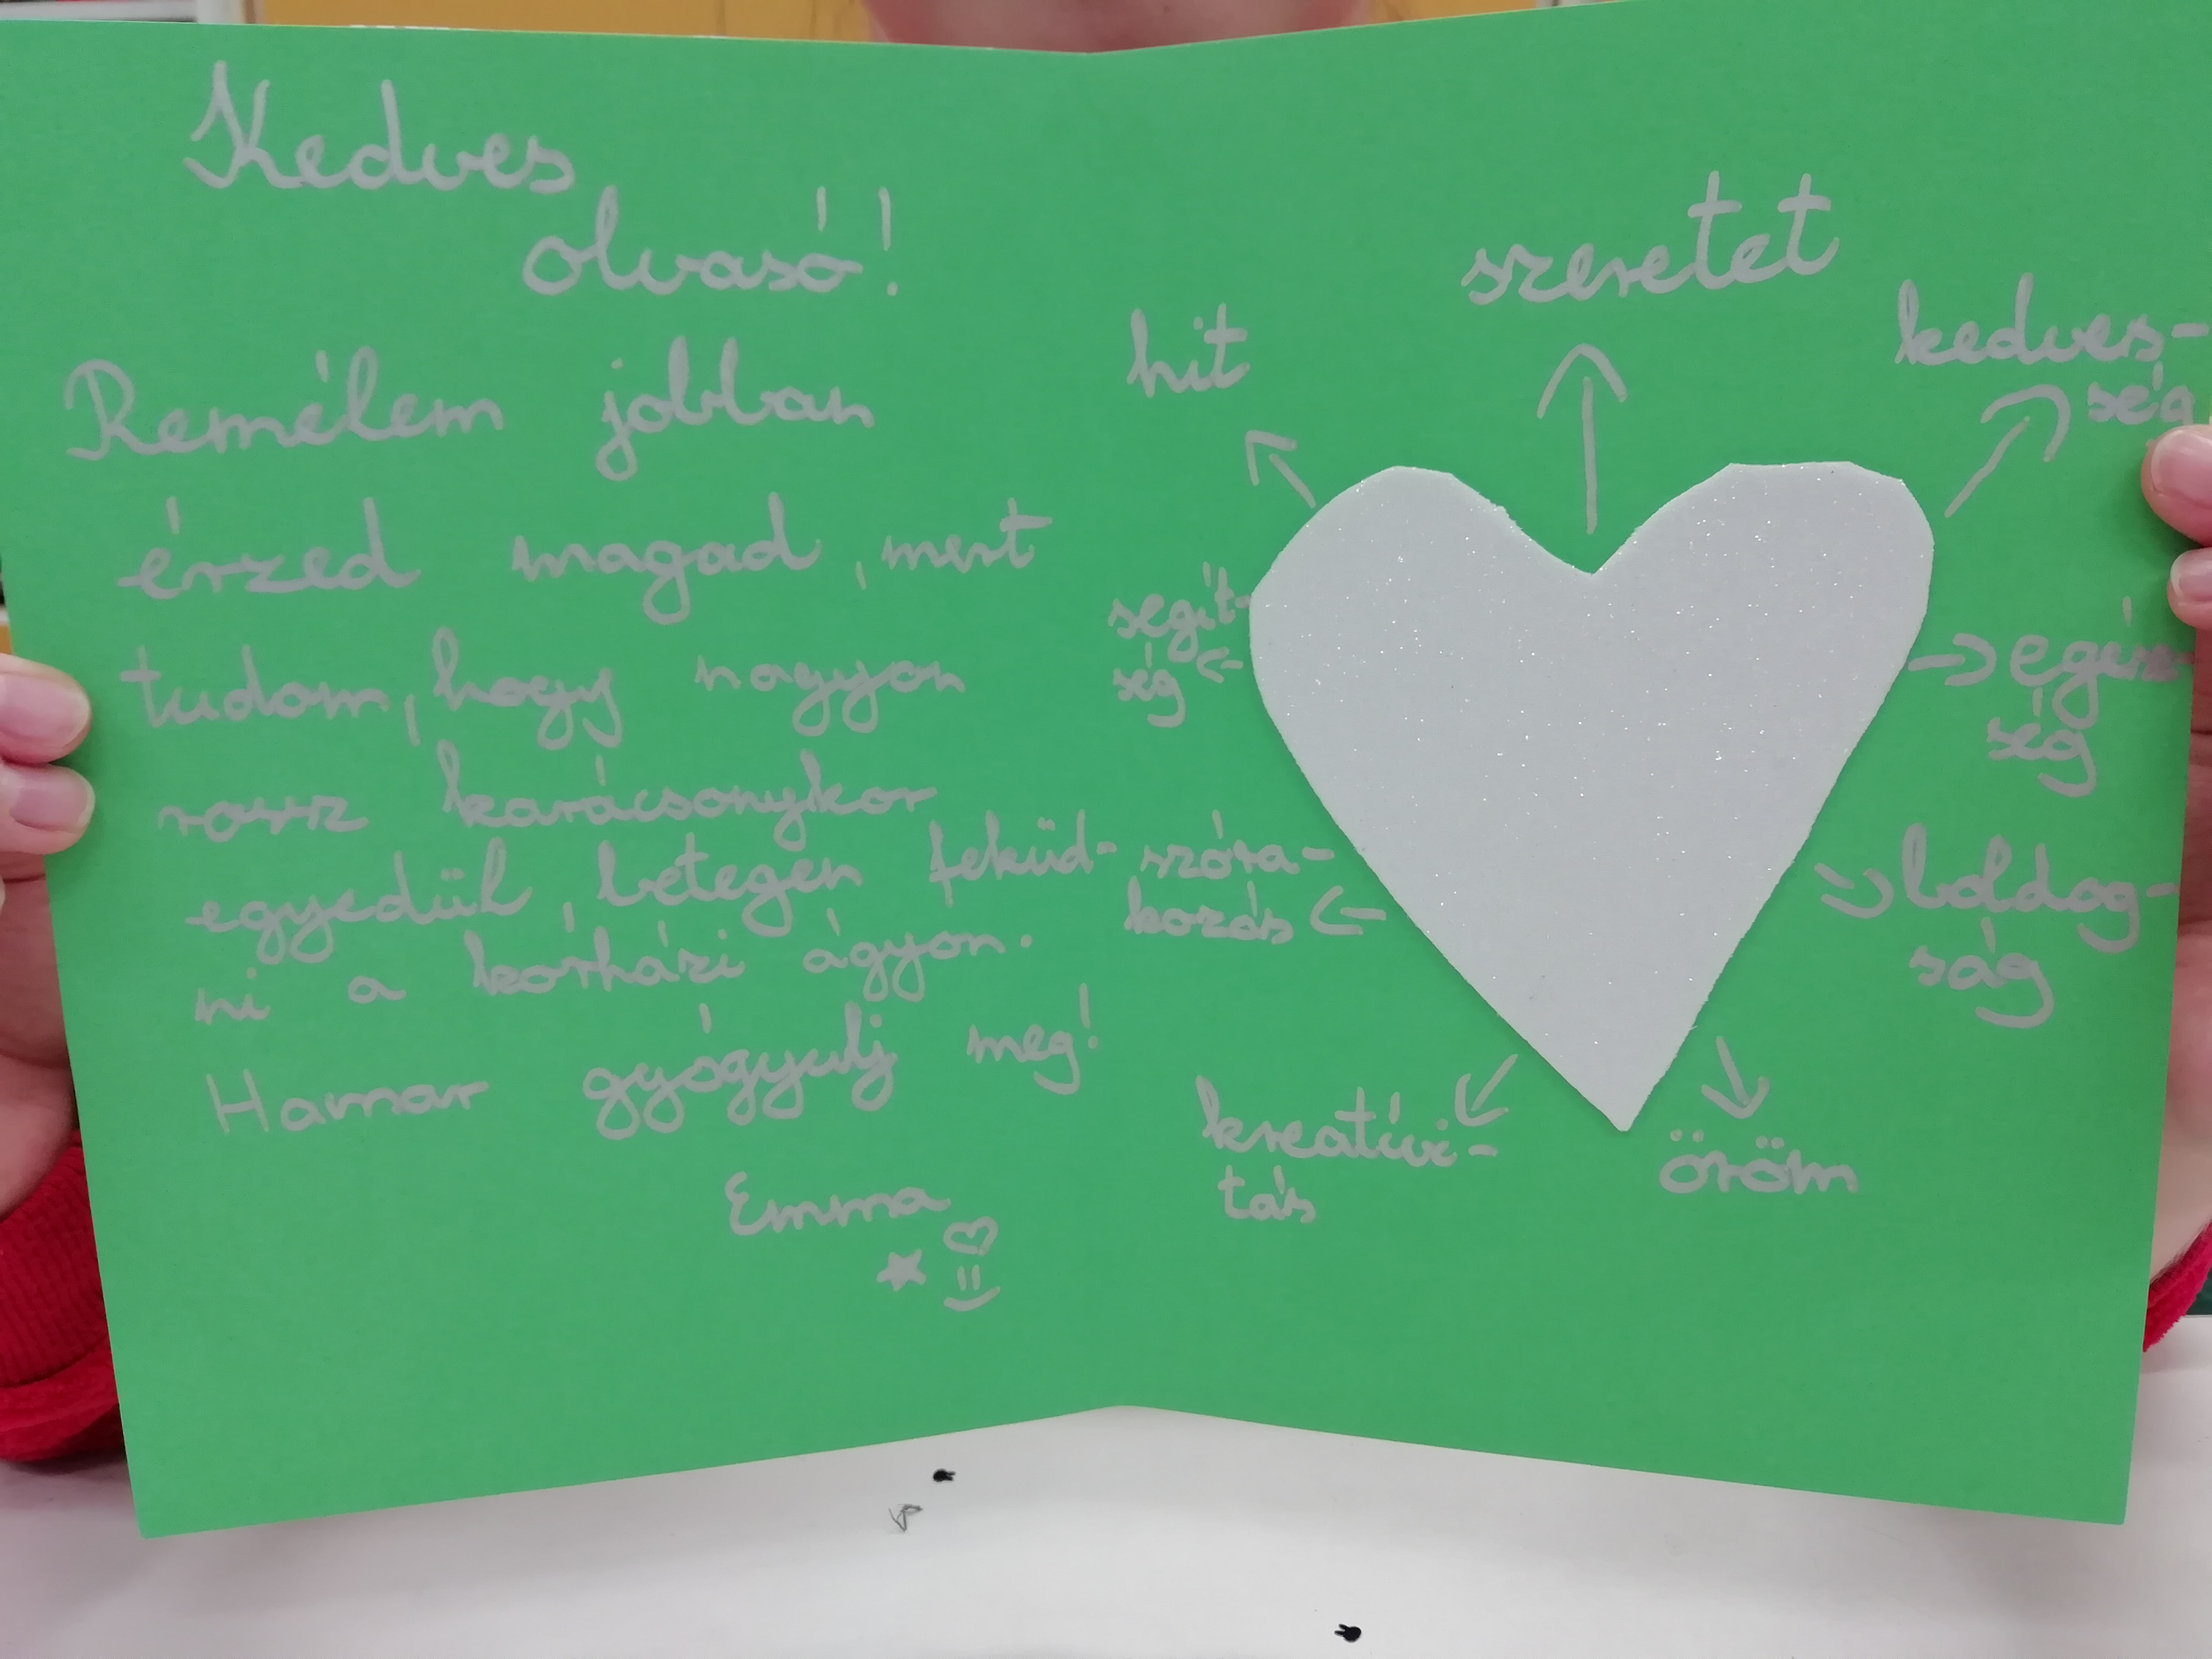 Kedves
olvasó!
Remélem jobban
érzed magad, mert
tudom, hogy nagyon
rossz karácsonykor
egyedül, betegen feküd-
ni a kórházi ágyon.
Hamar gyógyulj meg!
Emma
szeretet
hit
kedves-
ség
segít-
ség
egész-
ség
szóra-
kozás
boldog-
ság
kreatívi-
tás
öröm